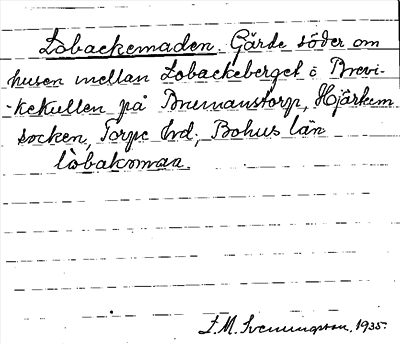 Lobackemaden. Gärde söder om
husen mellan Lobackeberget o Brevi-
-kekullen på Brunanstorp, Hjärtum
socken, Torpe hd, Bohus län
lòbakəmaa.
L.M. Svenungsson, 1935.